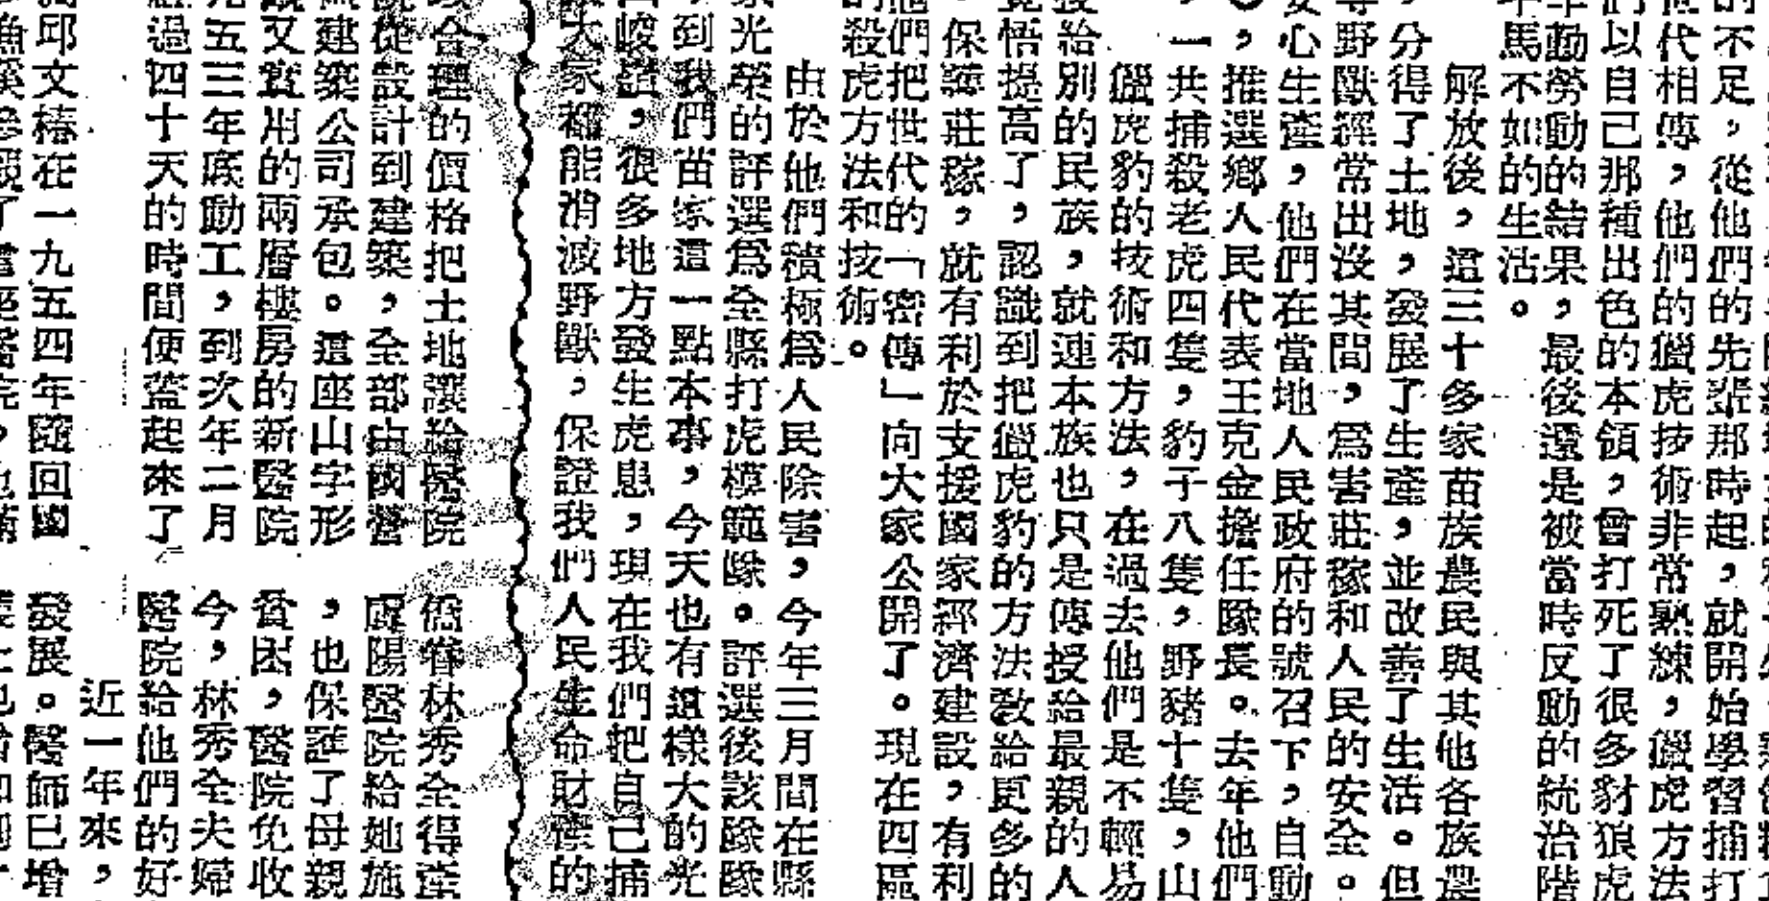 的不足，從他們的先輩那時起，就開始學習捕打
世代相傳，他們的獵虎技術非常熟練，獵虎方法
們以自己那種出色的本領，曾打死了很多豺狼虎
年勤勞動的結果，最後還是被當時反動的統治階
牛馬不如的的生活。
解放後，這三十多家苗族農民與其他各族農
分得了土地，發展了生產，並改善了生活。但
野獸經常出沒其間，爲害莊稼和人民的安全。
安心生產，他們在當地人民政府的號召下，自動
，推選鄉人民代表王克金擔任隊長。去年他們
，一共捕殺老虎四隻，豹子八隻，野豬十隻，山
獵虎豹的技術和方法，在過去他們是不輕易
授給別的民族，就連本族也只是傳授給最親的人
覺悟提高了，認識到把獵虎豹的方法教給更多的
保護莊稼，就有利於支援國家經濟建設，有利
他們把世代的「密傳」向大家公開了。現在四區
的殺虎方法和技術。
由於他們積極爲人民除害，今年三月間在縣
光榮的評選爲全縣打虎模範隊。評選後該隊隊
到我們苗家這一點本事，今天也有這樣大的光
峻嶺，很多地方發生虎患，現在我們把自己捕
大家都能消滅野獸，保證我們人民生命財產的
合理的價格把土地讓給醫院
從設計到建築，全部由國營
建築公司承包。這座山字形
又實用的兩層樓房的新醫院
五三年底動工，到次年二月
過四十天的時間便蓋起來了
邱文椿在一九五四年隨回國
僑眷林秀全得產
陽醫院給她施
，也保護了母親
貧困，醫院免收
今，林秀全夫婦
醫院給他們的好
近一年來，
發展。醫師已增